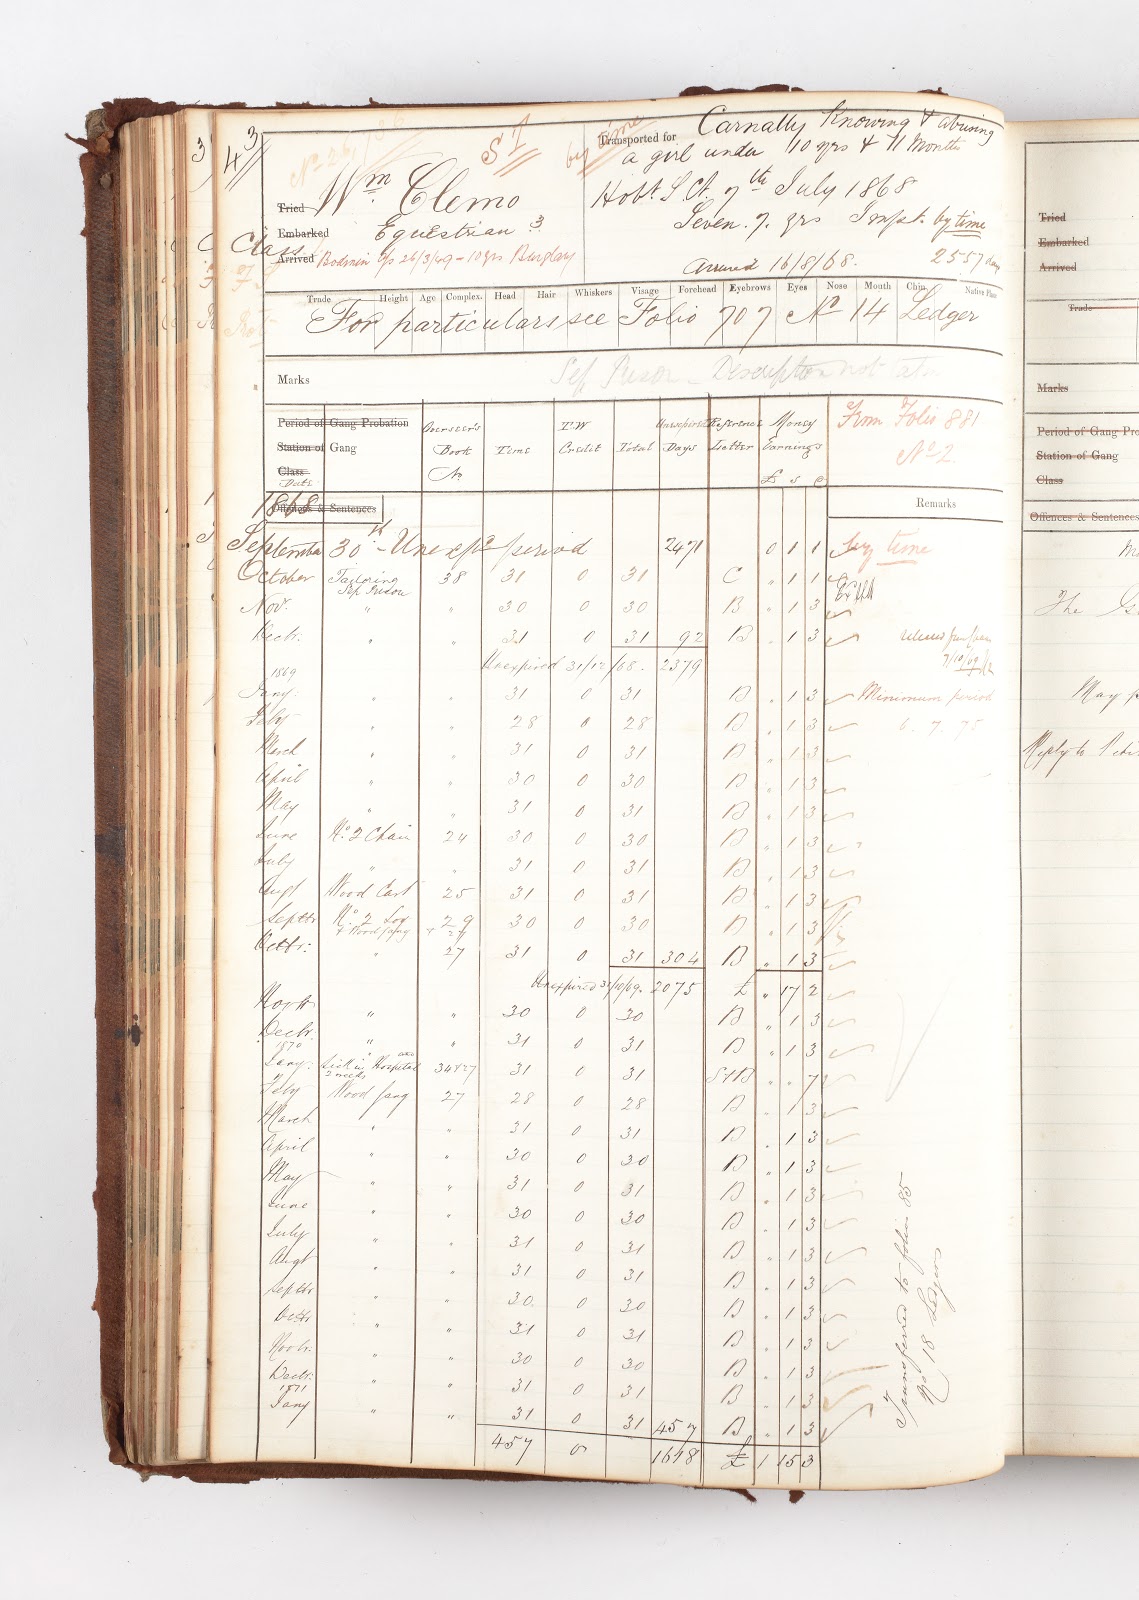 43
Wm Clemo
S I
by time
Transported for Carnally Knowing & abusing
a girl under 10 yrs & 11 Months
Hobt. S. Ct. 7th July 1868
Seven. 7. yrs Impt. by time
Arrived 16/8/68. 2557 days
Tried
Embarked Equestrian 3
Class
Arrived Bodmin 26/3/49 - 10 yrs Burglary
Trade Height Age Complex. Head Hair Whiskers Visage Forehead Eyebrows Eyes Nose Mouth Chin Native Place
For particulars see Folio 707 No 14 Ledger
Marks Sep Prison - Description not taken
Period of Gang Probation
Station of Gang
Class
Date
Offences & Sentences
Overseer's Book No.
Time
TW Credit
Total
Unexpired Days
Reference Letter
Money Earnings
£ s d
From Folio 881
No 2
Remarks
1868
September 30th - Unexpd period 2471 0 1 1 by time
October Tailoring Sep Prison 38 31 0 31 C " 1 1
Nov. " " 30 0 30 B " 1 3
Decr. " " 31 0 31 92 B " 1 3
Unexpired 31/12/68. 2379
1869
Jany. " " 31 0 31 B " 1 3 Minimum period
Feby " " 28 0 28 B " 1 3 6. 7. 75
March " " 31 0 31 B " 1 3
April " " 30 0 30 B " 1 3
May " " 31 0 31 B " 1 3
June No. 2 Chain 24 30 0 30 B " 1 3
July " 31 0 31 B " 1 3
Augt Wood Cart 25 31 0 31 B " 1 3
Septr No 2 Log & Wood gang 29 + 27 30 0 30 B " 1 3
Octr. " 27 31 0 31 304 B " 1 3
Unexpired 31/10/69. 2075 £ " 17 2
Novr " " 30 0 30 B " 1 3
Decbr. " " 31 0 31 B " 1 3
1870
Jany. Sick in Hospital 2 weeks 34 & 27 31 0 31 " " 7
Feby Wood gang 27 28 0 28 B " 1 3
March " " 31 0 31 B " 1 3
April " " 30 0 30 B " 1 3
May " " 31 0 31 B " 1 3
June " " 30 0 30 B " 1 3
July " " 31 0 31 B " 1 3
Augt " " 31 0 31 B " 1 3
Septr " " 30 0 30 B " 1 3
Octr " " 31 0 31 B " 1 3
Novbr. " " 30 0 30 B " 1 3
Decbr. " " 31 0 31 B " 1 3
1871
Jany " " 31 0 31 457 B " 1 3
457 0 1618 £ 1 15 3
Transferred to folio 85
No 18 Ledger
Tried
Embarked
Arrived
Trade
Marks
Period of Gang Pro
Station of Gang
Class
Offences & Sentences
The
May
Reply to